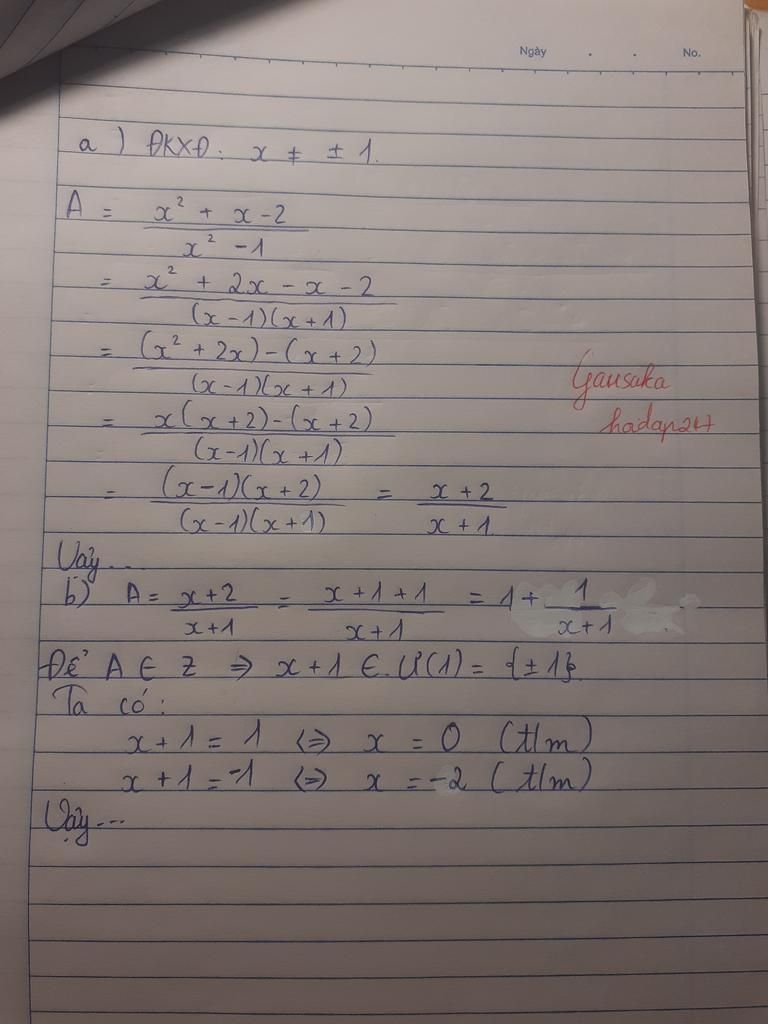 Ngày . . No.
a) ĐKXĐ: x ≠ ± 1.
A = (x² + x - 2)/(x² - 1)
= (x² + 2x - x - 2)/((x-1)(x+1))
= ((x² + 2x) - (x + 2))/((x-1)(x+1))
= (x(x+2) - (x+2))/((x-1)(x+1))
= ((x-1)(x+2))/((x-1)(x+1)) = (x+2)/(x+1)
Gausaka
hoidap247
Vậy...
b) A = (x+2)/(x+1) = (x+1+1)/(x+1) = 1 + 1/(x+1)
Để A ∈ Z ⇒ x+1 ∈ Ư(1) = {±1}.
Ta có:
x + 1 = 1 ⇔ x = 0 (t/m)
x + 1 = -1 ⇔ x = -2 (t/m)
Vậy...